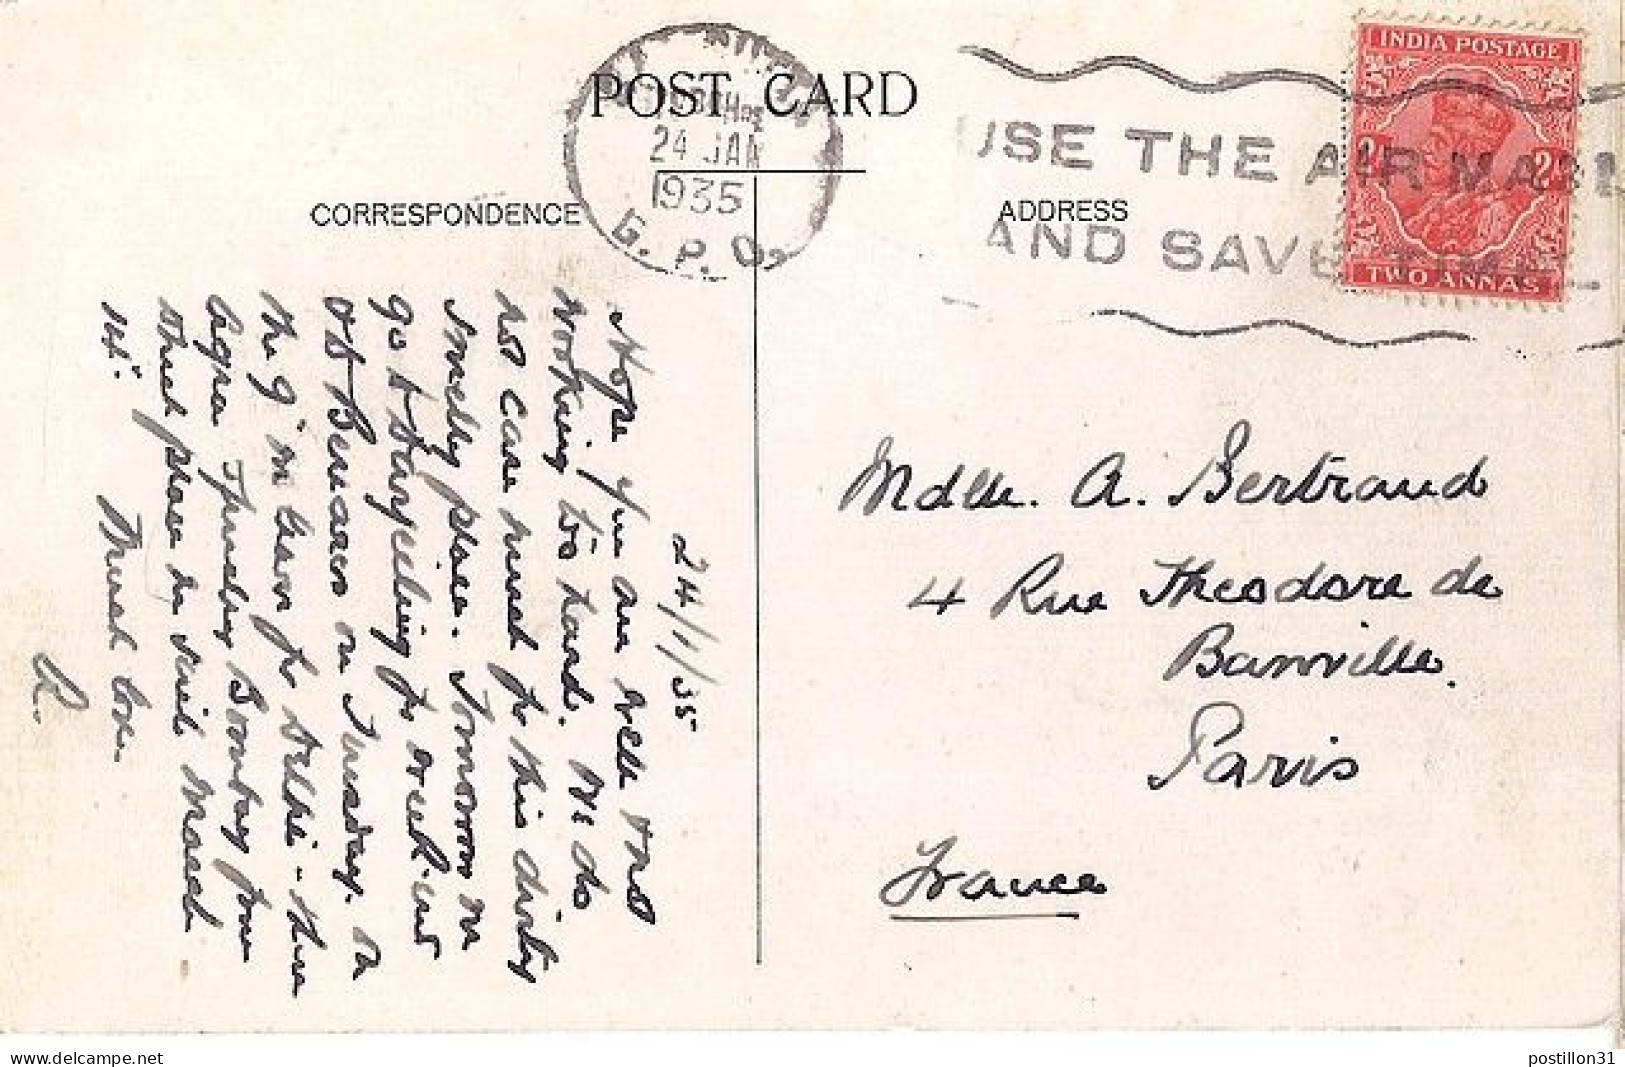 POST CARD
CORRESPONDENCE
ADDRESS
24 JAN
1935
G. P. O.
USE THE AIR MAIL
AND SAVE TIME
INDIA POSTAGE
2 2
TWO ANNAS
24/1/35
Hope you are well and
working too hard. We do
not care much for this dirty
smelly place. Tomorrow we
go to Darjeeling for week-end
at Benares on Tuesday. On
the 9th we leave for Delhi - then
Agra Thursday Bombay from
that place we sail March
14th.
Much love.
R.
Mdlle. A. Bertraud
4 Rue Theodore de
Banville.
Paris
France
www.delcampe.net
postillon31